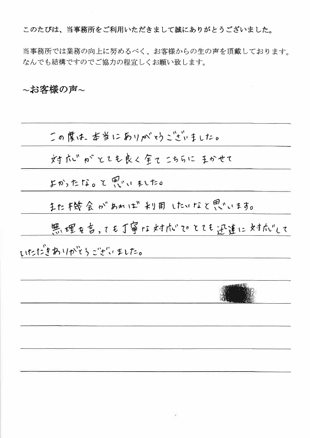 このたびは、当事務所をご利用いただきまして誠にありがとうございました。
当事務所では業務の向上に努めるべく、お客様からの生の声を頂戴しております。
なんでも結構ですのでご協力の程宜しくお願い致します。
~お客様の声~
この度は、本当にありがとうございました。
対応がとても良く全てこちらにまかせて
よかったな。と思いました。
また機会があれば利用したいなと思います。
無理を言っても丁寧な対応でとても迅速に対応して
いただきありがとうございました。